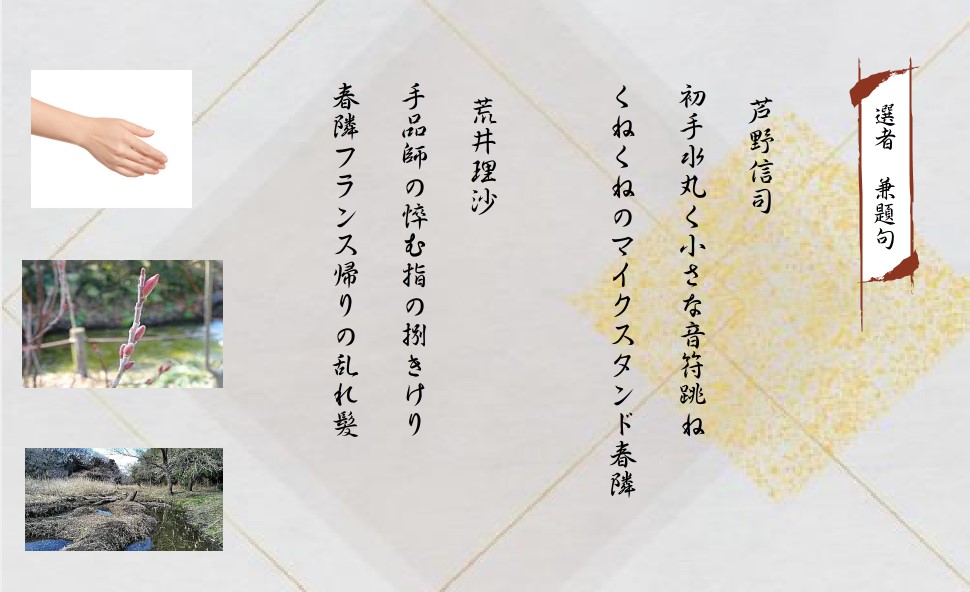 選者　兼題句
芦野信司
初手水丸く小さな音符跳ね
くねくねのマイクスタンド春隣
荒井理沙
手品師の悴む指の捌きけり
春隣フランス帰りの乱れ髪